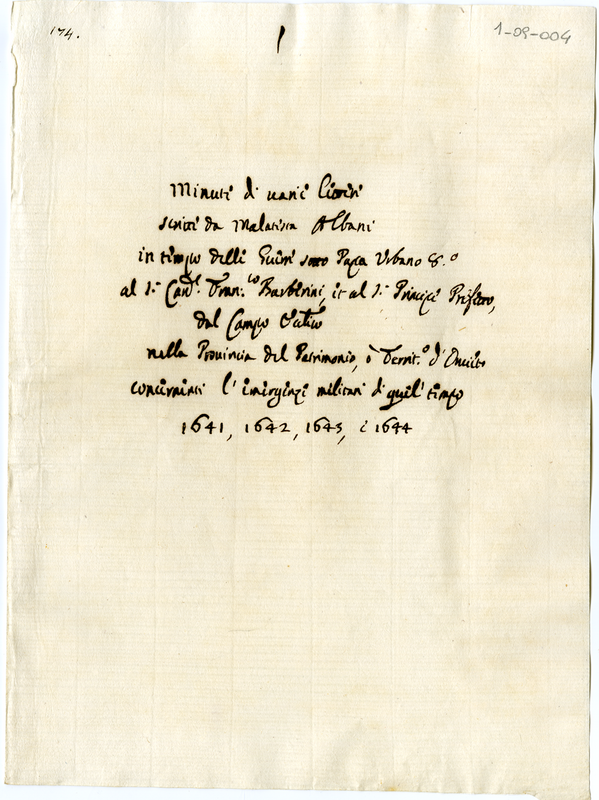 174.
1-09-004
Minute di varie lettere
scritte da Malatesta Albani
in tempo delle Guerre sotto Papa Urbano 8.º
al S.r Card.l Fran.co Barberini, et al S.r Principe Prefetto,
dal Campo
nella Provincia del Patrimonio, ò Territ.º d'Orvieto
concernenti l'emergenze militari di quel tempo
1641, 1642, 1643, e 1644